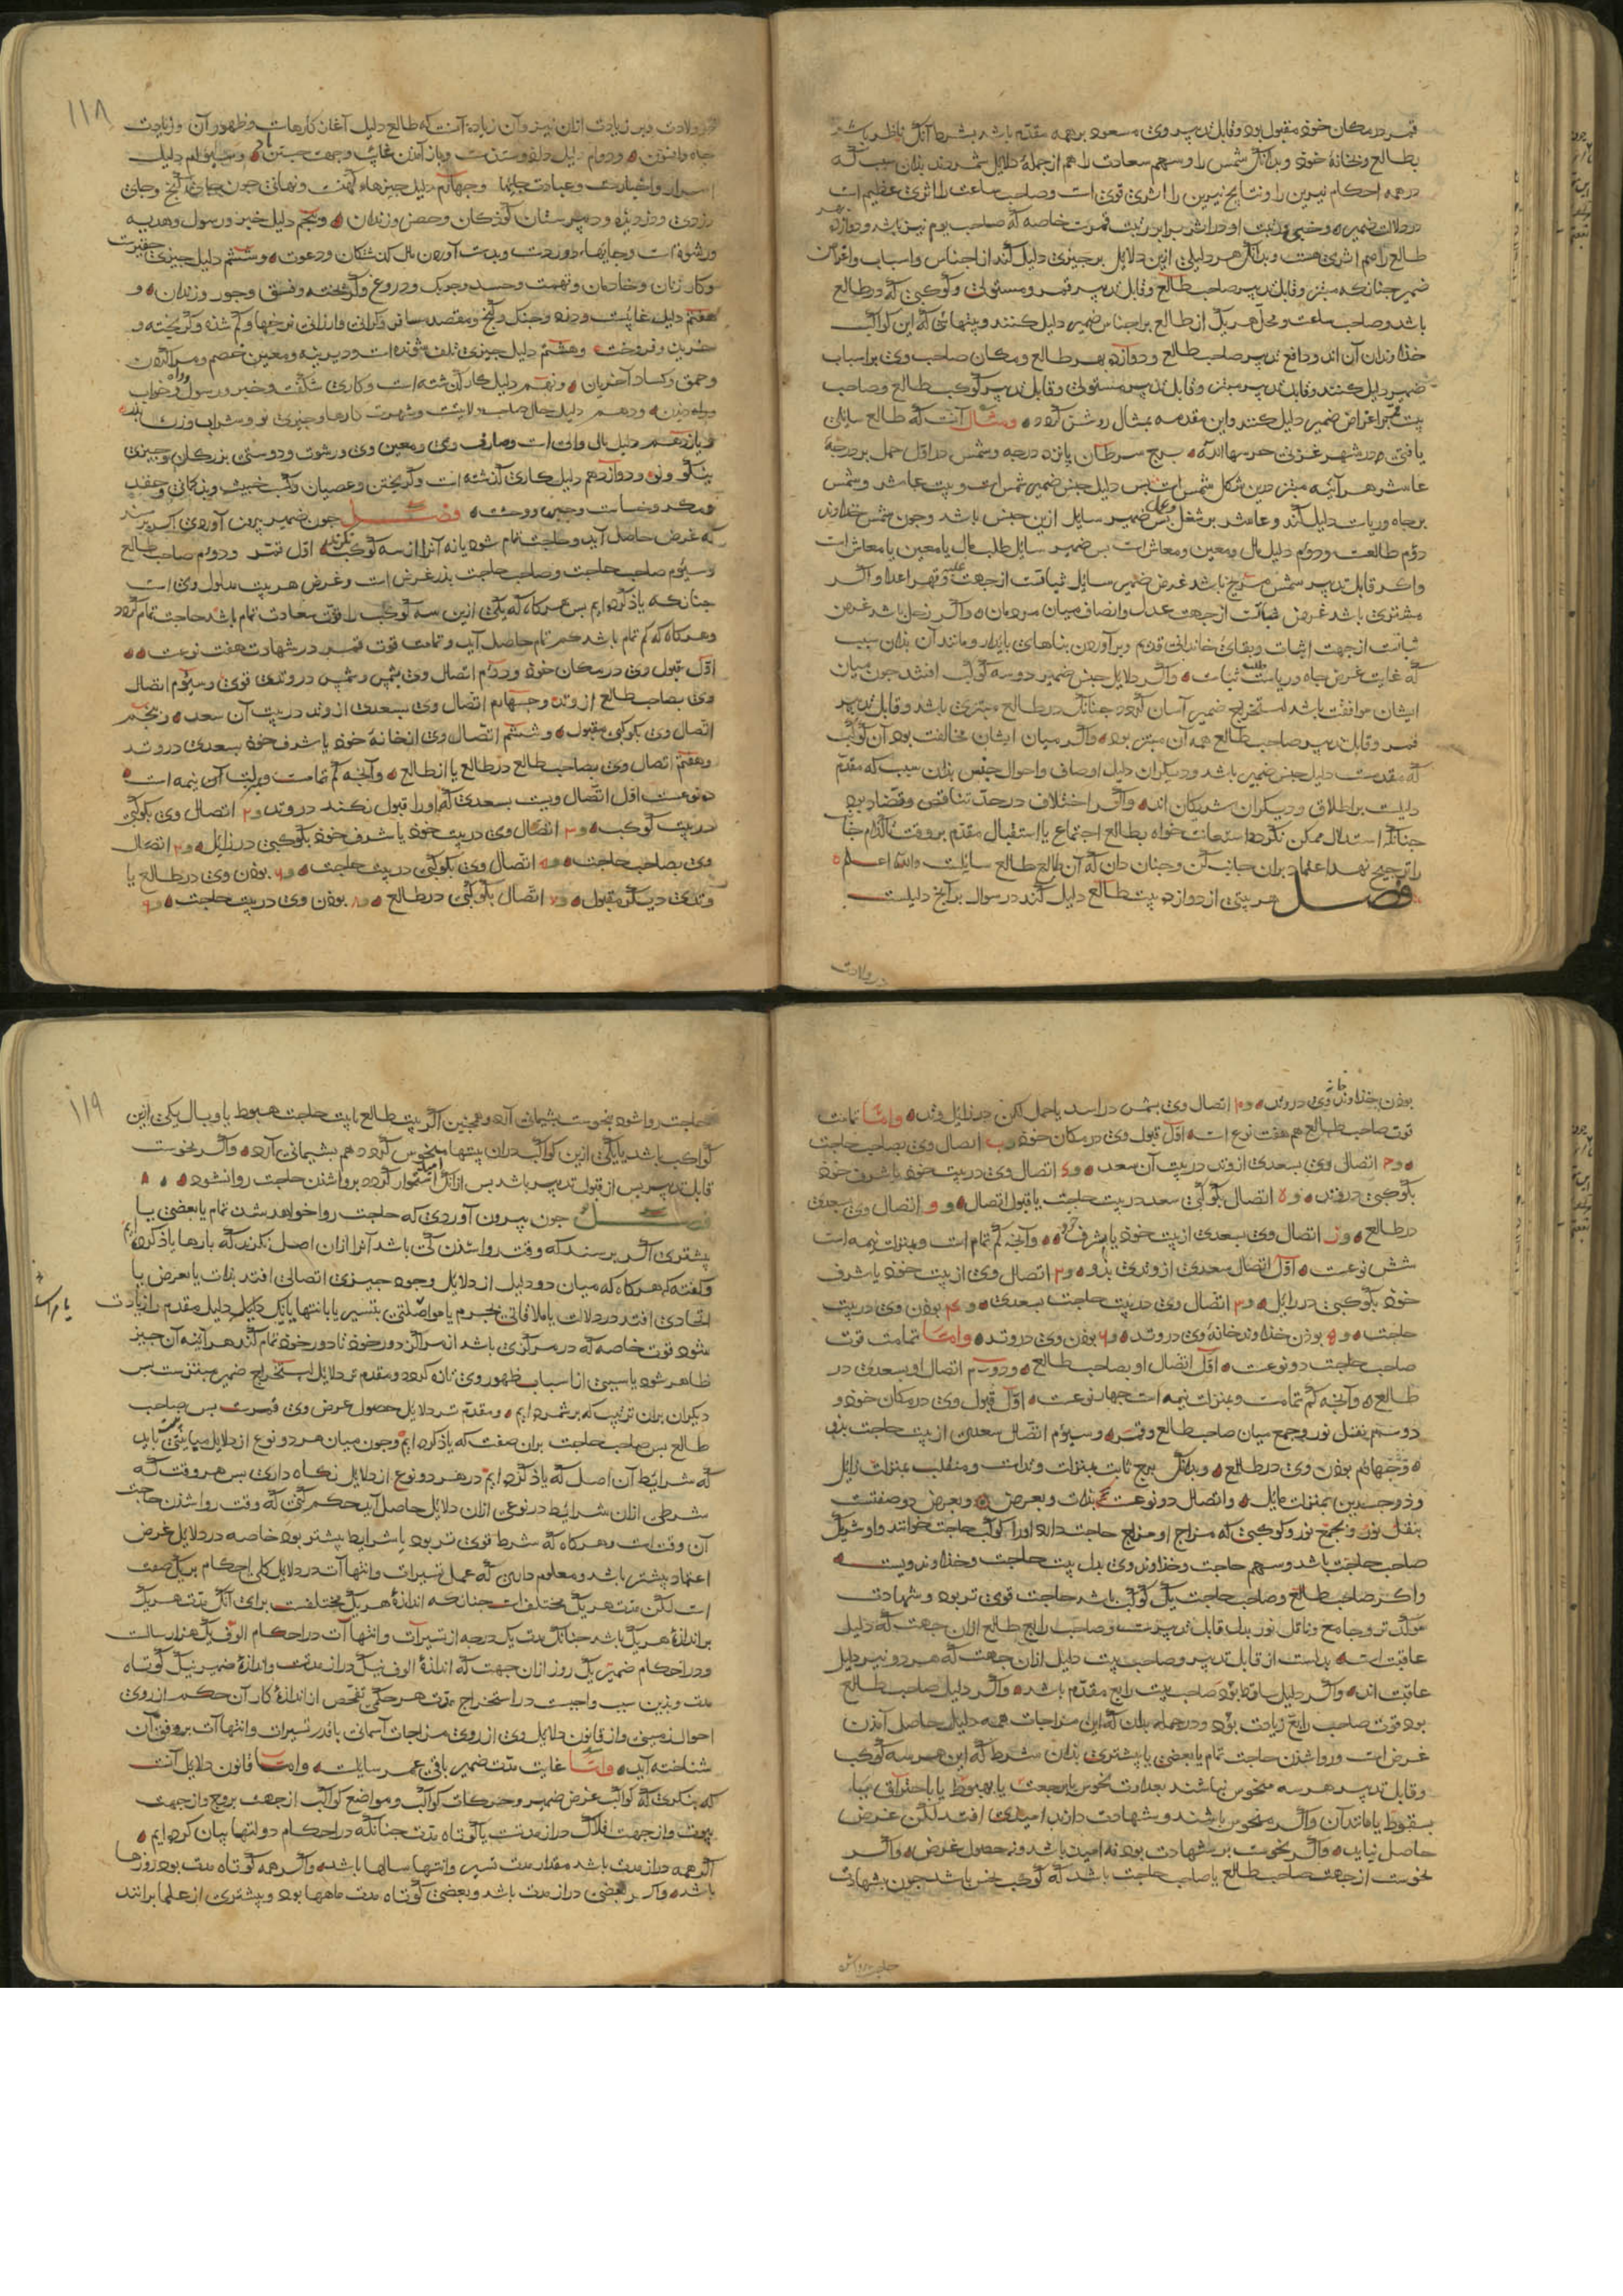 قمر در مکان خود مقبول بود و قابل تدبیر وی مسعود بر همه مقدم باشد بشرط آنک ناظر باشد
بطالع و بخانهٔ خود و بدانک شمس را و سهم سعادت را هم از جملهٔ دلایل شمردند بدان سبب که
در همه احکام نیرین را و نتایج نیرین را اثری قوی است و صاحب ساعت را اثری عظیم است
طالع را هم اثری هست و بدانک هر دلیلی ازین دلایل بر چیزی دلیل کند از اجناس و اسباب و اغراض
ضمیر چنانکه مبتز و قابل تدبیر صاحب طالع و قابل تدبیر قمر و مستولی و کوکبی که در طالع
باشد و صاحب ساعت و محل هر یک از طالع بر اجناس ضمیر دلیل کنند و بیتهائی که این کواکب
خداوندان آن اند و دافع تدبیر صاحب طالع و دوازده بهر طالع و مکان صاحب وی بر اسباب
ضمیر دلیل کنند و قابل تدبیر مبتز و قابل تدبیر مستولی و قابل تدبیر کوکب طالع و صاحب
بیت قمر بر اغراض ضمیر دلیل کنند و این مقدمه بمثال روشن گردد و مثال آنست که طالع سایلی
یافتیم در شهر غزنی حرسها الله برج سرطان پانزده درجه و شمس در اول حمل بر درجهٔ
عاشر هر آئینه مبتز درین شکل شمس است پس دلیل جنس ضمیر شمس است و بیت عاشر و شمس
بر جاه و ریاست دلیل کند و عاشر بر شغل و عمل پس ضمیر سایل ازین جنس باشد و چون شمس خداوند
دوم طالعست و دوم دلیل مال و معین و معاش است پس ضمیر سایل طلب مال یا معین یا معاش است
واگر قابل تدبیر شمس مریخ باشد غرض ضمیر سایل ثباتست از جهت غلبه و قهر اعدا و اگر
مشتری باشد غرض ثباتست از جهت عدل و انصاف میان مردمان و اگر زحل باشد غرض
ثباتست از جهت اثبات و بقای خاندانی قدیم و برآوردن بناهای پایدار و مانند آن بدان سبب
که غایت غرض جاه و ریاست طلب ثبات و اگر دلایل جنس ضمیر دو سه کوکب افتد چون میان
ایشان موافقت باشد استخراج ضمیر آسان گردد چنانک در طالع مشتری باشد و قابل تدبیر
قمر و قابل تدبیر صاحب طالع همه آن مبتز بود و اگر میان ایشان مخالفت بود آن کوکب
که مقدمست دلیل جنس ضمیر باشد و دیگران دلیل اوصاف و احوال جنس بدان سبب که مقدم
دلیلست بر اطلاق و دیگران شریکان اند و اگر اختلاف در حد تناقض و تضاد بود
چنانک استدلال ممکن نگردد استعانت خواه بطالع اجتماع یا استقبال مقدم بر وقت تا کدام جانب
را ترجیح نهد اعتماد بران جانب کن و چنان دان که آن طالع طالع سایلست والله اعلم
فصل هر بیتی از دوازده بیت طالع دلیل کند در سوال بر آنچ دلیلست
در ولادت
۱۱۸
در ولادت و بر زیادت ازان نیز و آن زیاده آنست که طالع دلیل آغاز کارهاست و ظهور آن و زیادت
اسرار و اخبارست و عبادت جایها و چهارم دلیل چیزهاء کهنست و نهانی چون جای گنج و جای
دزدی و دزدیده و دبیرستان کودکان و حصن و زندان و پنجم دلیل خبر و رسول و هدیه
ورشوه است و جایهاء دوردست و بدست آوردن مال گذشتگان و دعوت و ششم دلیل چیزی حقیرست
وکار زنان و خادمان و تهمت و حسد و چربک و دروغ و گریخته و فسق و جور و زندان و
هفتم دلیل غایبست و دزد و جنگ و گنج و مقصد مسافر و گرانی و ارزانی نرخها و گم شده و گریخته و
خرید و فروخت و هشتم دلیل چیزی تلف شونده است و دیرینه و معین خصم و میراثیان
وحمق و کساد آخریان و نهم دلیل کار گذشته است و کاری شگفت و خبر و رسول و خواب
و راه زدن و دهم دلیل حال صاحب ولایتست و شهرت کارها و چیزی نو و شراب و زن
ویازدهم دلیل مال والی است و مصارف وی و معین وی و رشوت و دوستی بزرگان و چیزی
نیکو و نو و دوازدهم دلیل کاری گذشته است و گریختن و عصیان و کسب خبیث و بدگمانی و حقد
ومکر و خساست و حبس و وحشت فصل چون ضمیر بیرون آوردی اگر پرسند
که غرض حاصل آید و حاجت تمام شود یا نه آنرا از سه کوکب نگرند اول قمر و دوم صاحب طالع
وسیوم صاحب حاجت و صاحب حاجت بذر غرض است و غرض هر بیت مدلول وی است
چنانکه یاد کرده ایم پس هرگاه که یکی ازین سه کوکب را قوت سعادت تمام باشد حاجت تمام گردد
وهرگاه که کم تمام باشد کم تمام حاصل آید و تمامت قوت قمر در شهادت هفت نوعست
اول قبول وی در مکان خود و دوم اتصال وی بشمس و شمس در وتدی قوی و سیوم اتصال
وی بصاحب طالع از وتد و چهارم اتصال وی بسعدی از وتد در بیت آن سعد و پنجم
اتصال وی بکوکبی مقبول و ششم اتصال وی از خانهٔ خود یا شرف خود بسعدی در وتد
وهفتم اتصال وی بصاحب طالع در طالع یا از طالع و آنچه کم تمامست و بمنزلت آن نیمه است
ده نوعست اول اتصال ویست بسعدی که او را قبول نکند در وتد و۲ اتصال وی بکوکبی
در بیت کوکب و۳ اتصال وی در بیت خود یا شرف خود بکوکبی در زایل و۴ اتصال
وی بصاحب حاجت و۵ اتصال وی بکوکبی در بیت حاجت و۶ بودن وی در طالع یا
وتدی دیگر مقبول و۷ اتصال بکوکبی در طالع و۸ بودن وی در بیت حاجت و۹
بودن خداوند خانهٔ وی در وتد و۱۰ اتصال وی بشمس در اسد یا حمل لکن در زایل وتد و اما تمامت
قوت صاحب طالع هم هفت نوع است اول قبول وی در مکان خود و ب اتصال وی بصاحب حاجت
و ج اتصال وی بسعدی از وتد در بیت آن سعد و د اتصال وی در بیت خود یا شرف خود
بکوکبی در وتد و ه اتصال بکوکبی سعد در بیت حاجت یا قبول اتصال و و اتصال وی بسعدی
در طالع و ز اتصال وی بسعدی از بیت خود یا شرف خود و آنچه کم تمام است و بمنزلت نیمه است
شش نوعست اول اتصال سعدی از وتدی بدو و۲ اتصال وی از بیت خود یا شرف
خود بکوکبی در زایل و۳ اتصال وی در بیت حاجت بسعدی و۴ بودن وی در بیت
حاجت و۵ بودن خداوند خانهٔ وی در وتد و۶ بودن وی در وتد و اما تمامت قوت
صاحب حاجت دو نوعست اول اتصال او بصاحب طالع و دوم اتصال او بسعدی در
طالع و آنچه کم تمامست و بمنزلت نیمه است چهار نوعست اول قبول وی در مکان خود و
دوم بنقل نور و جمع میان صاحب طالع و قمر و سیوم اتصال سعدی از بیت حاجت بدو
و چهارم بودن وی در طالع و بدانک برج ثابت بمنزلت وتدست و منقلب بمنزلت زایل
وذوجسدین بمنزلت مایل و اتصال دو نوعست بذات و بعرض و بعرض دو صفتست
بنقل نور و بجمع نور و کوکبی که مزاج او مزاج حاجت دارد او را کوکب حاجت خوانند و او شریک
صاحب حاجت باشد و سهم حاجت و خداوند وی بدل بیت حاجت و خداوند ویست
واگر صاحب طالع و صاحب حاجت یک کوکب باشد حاجت قوی تر بود و شهادت
موکدتر و جامع و ناقل نور بدل قابل تدبیرست و صاحب رابع طالع ازان جهت که دلیل
عاقبت است بدلست از قابل تدبیر و صاحب بیت دلیل ازان جهت که هر دو نیز دلیل
عاقبت اند و اگر دلیل ساقط بود صاحب بیت رابع مقدم باشد و اگر دلیل صاحب طالع
بود قوت صاحب رابع زیادت بود و در جمله بدان که این مزاجات همه دلیل حاصل آمدن
غرض است و روا شدن حاجت تمام یا بعضی یا بیشتری بدان شرط که این هر سه کوکب
وقابل تدبیر هر سه منحوس نباشند بعداوت نحوس یا برجعت یا بهبوط یا باحتراق یا
بسقوط یا مانند آن و اگر منحوس باشند و شهادت دارند امیدی افتد لکن غرض
حاصل نیاید و اگر نحوست بی شهادت بود نه امید باشد و نه حصول غرض و اگر
نحوست از جهت صاحب طالع یا صاحب حاجت باشد که کوکب نحس باشد چون بشهادت
حاجت روا شود
۱۱۹
حاجت روا شود بنحوست پشیمانی آرد و همچنین اگر بیت طالع یا بیت حاجت هبوط یا وبال یکی ازین
کواکب باشد یا یکی ازین کواکب دران بیتها منحوس گردد هم پشیمانی آرد و اگر نحوست
قابل تدبیر پس از قبول تدبیر باشد پس ازانک امید استوار گردد بروا شدن حاجت روا نشود
فصل چون بیرون آوردی که حاجت روا خواهد شدن تمام یا بعضی یا
بیشتری اگر پرسند که وقت روا شدن کی باشد آنرا ازان اصل نگرند که بارها یاد کرده ایم
وگفته که هرگاه که میان دو دلیل از دلایل وجود چیزی اتصالی افتد بذات یا بعرض یا
اتحادی افتد در دلالت یا ملاقاتی بجرم یا مواصلتی بتسییر یا بانتها یا یک دلیل دلیل مقدم را زیادت
شود قوت خاصه که در مرکزی باشد از مراکز دور خود تا دور خود تمام کند هر آینه آن چیز
ظاهر شود یا سببی از اسباب ظهور وی تازه گردد و مقدم تر دلایل استخراج ضمیر مبتزست پس
دیگران بران ترتیب که برشمردیم و مقدم تر دلایل حصول غرض وی قمرست پس صاحب
طالع پس صاحب حاجت بران صفت که یاد کرده ایم و چون میان هر دو نوع از دلایل مباینتی نباید
که شرایط آن اصل که یاد کرده ایم در هر دو نوع از دلایل نگاه داری پس هر وقت که
شرطی ازان شرایط در نوعی ازان دلایل حاصل آید حکم کنی که وقت روا شدن حاجت
آن وقت است و هرگاه که شرط قوی تر بود یا شرایط بیشتر بود خاصه در دلایل غرض
اعتماد بیشتر باشد و معلوم داری که عمل تسییرات و انتهاآت در دلایل کلی احکام بر یک صفت
است لکن مدت هر یک مختلف است چنانکه اندازهٔ هر یک مختلفست برای آنک مدت هر یک
بر اندازهٔ هر یک باشد چنانک مدت یک درجه از تسییرات و انتهاآت در احکام الوف یک هزار سالست
ودر احکام ضمیر یک روز ازان جهت که اندازهٔ الوف نیک دراز مدتست و اندازهٔ ضمیر نیک کوتاه
مدت و بدین سبب واجبست در استخراج مدت هر حکمی تفحص از اندازهٔ کار آن حکم از روی
احوال زمینی و از قانون دلایل وی از روی مزاجات آسمانی با قدر تسییرات و انتهاآت بر وفق آن
شناخته آید و اما غایت مدت ضمیر باقی عمر سایلست و اما قانون دلایل آنست
که بنگری که کواکب غرض ضمیر و حرکات کواکب و مواضع کواکب از جهت بروج و از جهت
بیوت و از جهت افلاک دراز مدتست یا کوتاه مدت چنانکه در احکام دولتها بیان کرده ایم
اگر همه دراز مدت باشد مقدار مدت تسییر و انتها سالها باشد و اگر همه کوتاه مدت بود روزها
باشد و اگر بعضی دراز مدت باشد و بعضی کوتاه مدت ماهها بود و بیشتری از علما برانند